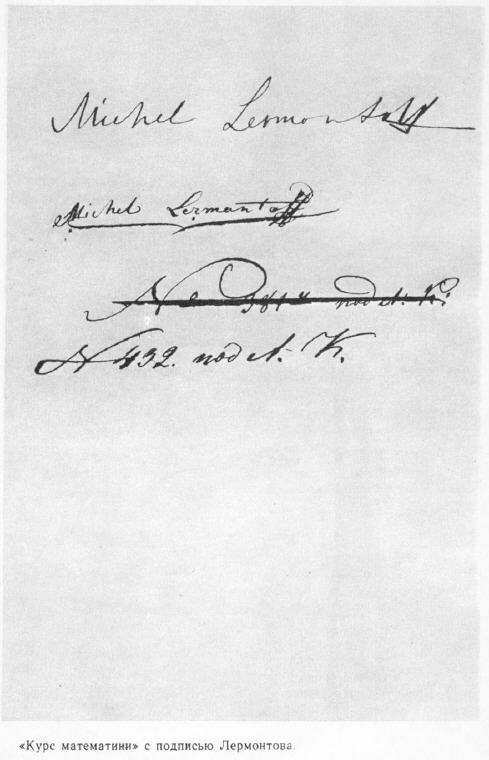 Michel Lermontoff
Michel Lermantoff
N
N 432. под А. К.
«Курс математики» с подписью Лермонтова.